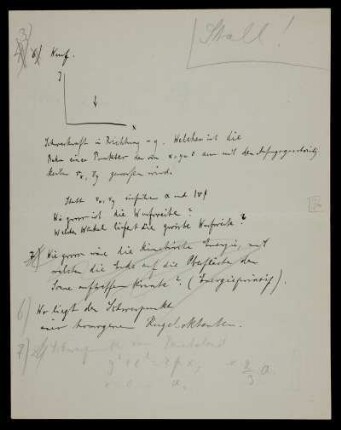 Stall!
3
6) Wurf.
y
x
Schwerkraft in Richtung -y. Welches ist die
Bahn eines Punktes der von x, y = 0 aus mit den Anfangsgeschwindig-
keiten vx, vy geworfen wird.
Statt vx, vy einführen α und |v|
Wie gross ist die Wurfweite?
Welcher Winkel liefert die grösste Wurfweite?
7) Wie gross wäre die kinetische Energie, mit
welcher die Erde auf die Oberfläche der
Sonne auftreffen könnte? (Energieprinzip).
6) Wo liegt der Schwerpunkt
eines homogenen Kugeloktanten.
7) Schwerpunkt von